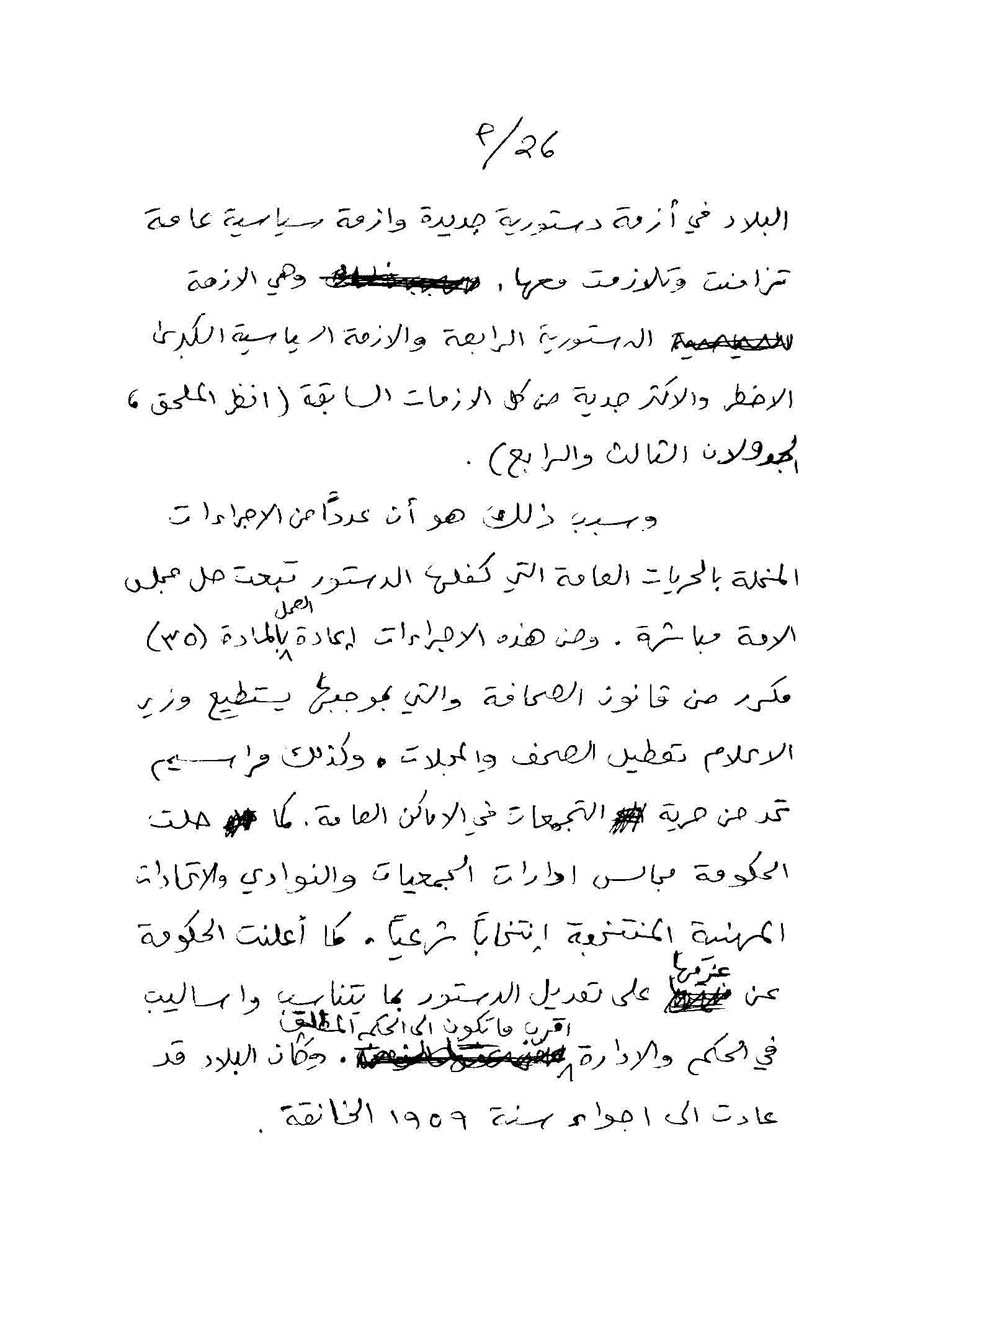 ٩/26
البلاد في أزمة دستورية جديدة وازمة سياسية عامة
تزامنت وتلازمت معها، وهي الازمة
الدستورية الرابعة والازمة السياسية الكبرى
الاخطر والاكثر جدية من كل الازمات السابقة (انظر الملحق،
الجدولان الثالث والرابع).
وسبب ذلك هو أن عدداً من الاجراءات
المخلة بالحريات العامة التي كفلها الدستور تبعت حل مجلس
الامة مباشرة. ومن هذه الاجراءات إعادة العمل بالمادة (٣٥)
مكرر من قانون الصحافة والتي بموجبها يستطيع وزير
الاعلام تعطيل الصحف والمجلات. وكذلك مراسيم
تحد من حرية التجمعات في الاماكن العامة. كما حلت
الحكومة مجالس ادارات الجمعيات والنوادي والاتحادات
المهنية المنتخبة إنتخاباً شرعياً. كما أعلنت الحكومة
عن عزمها على تعديل الدستور بما يتناسب واساليب
في الحكم والادارة اقرب ما تكون الى الحكم المطلق. وكأن البلاد قد
عادت الى اجواء سنة ١٩٥٩ الخانقة.